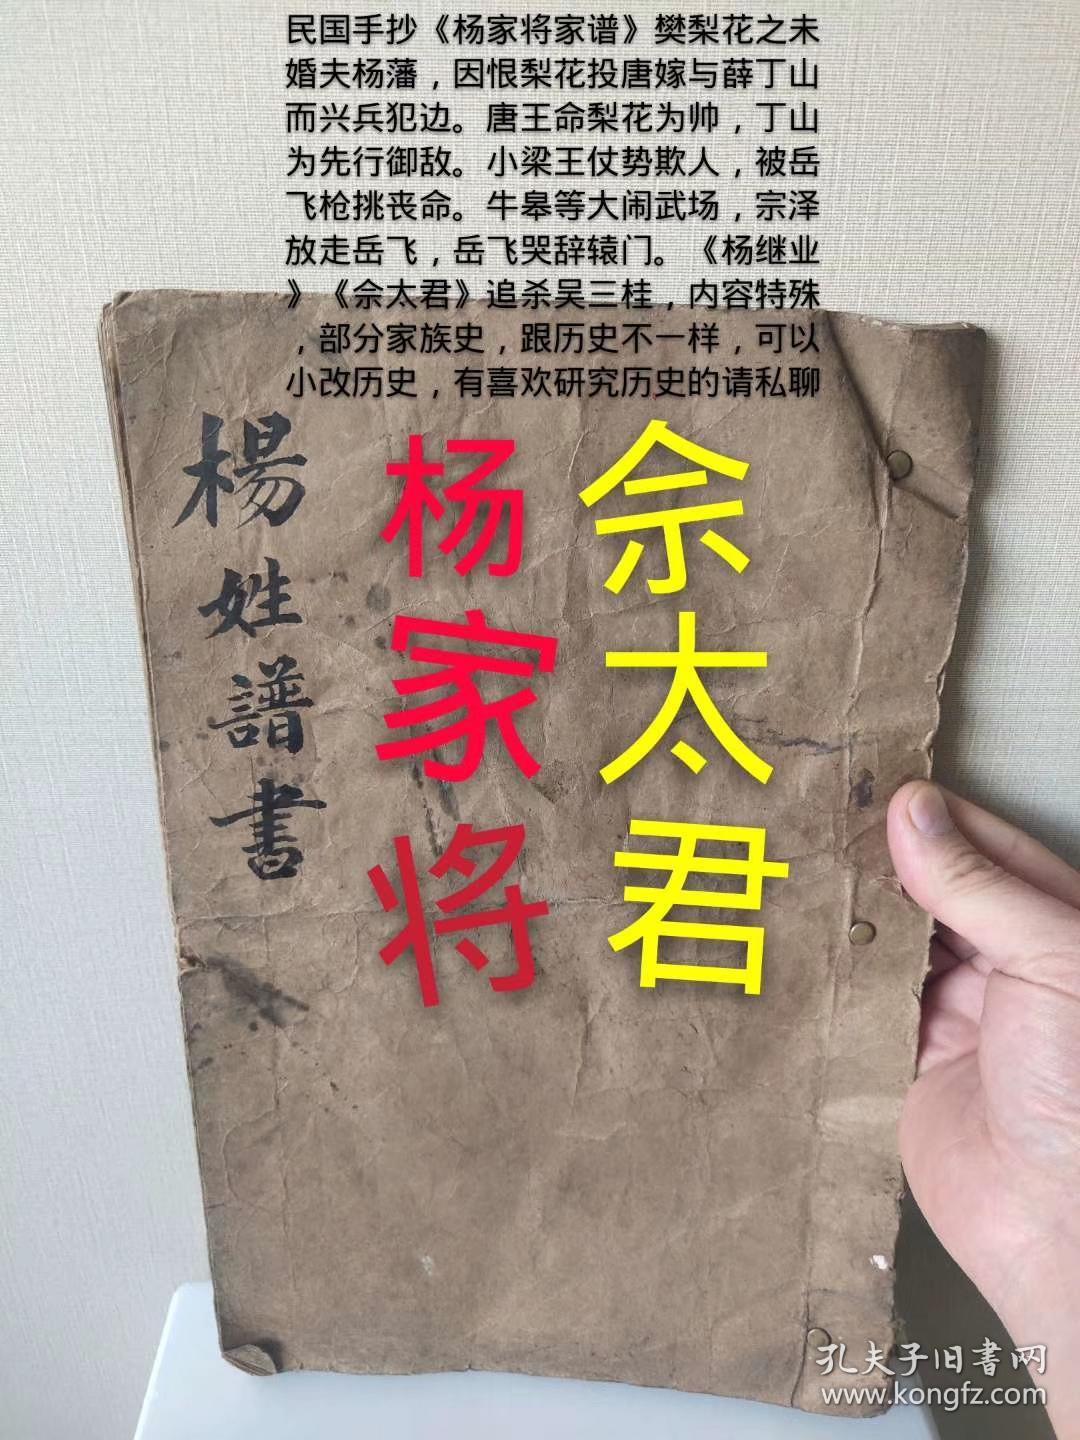 民国手抄《杨家将家谱》樊梨花之未
婚夫杨藩，因恨梨花投唐嫁与薛丁山
而兴兵犯边。唐王命梨花为帅，丁山
为先行御敌。小梁王仗势欺人，被岳
飞枪挑丧命。牛皋等大闹武场，宗泽
放走岳飞，岳飞哭辞辕门。《杨继业
》《佘太君》追杀吴三桂，内容特殊
，部分家族史，跟历史不一样，可以
小改历史，有喜欢研究历史的请私聊
楊姓譜書
杨家将
佘太君
孔夫子旧書网
www.kongfz.com